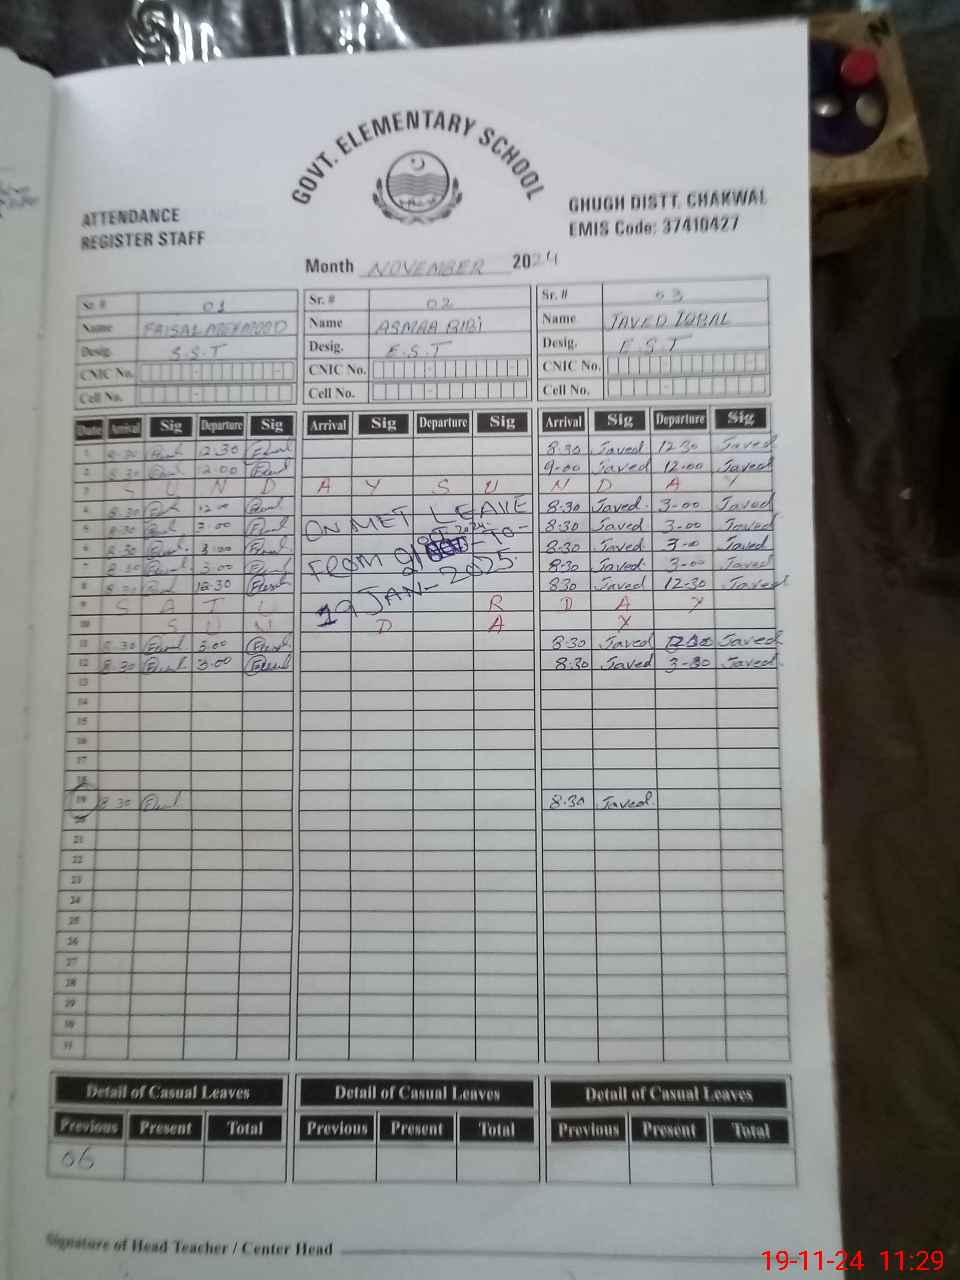 GOVT. ELEMENTARY SCHOOL
ATTENDANCE
REGISTER STAFF
GHUGH DISTT. CHAKWAL
EMIS Code: 37410427
Month NOVEMBER 2024
Sr. # 01 Sr. # 02 Sr. # 03
Name FAISAL MEHMOOD Name ASMAA BIBI Name JAVED IQBAL
Desig. S.S.T Desig. E.S.T Desig. E.S.T
CNIC No. CNIC No. CNIC No.
Cell No. Cell No. Cell No.
Date Arrival Sig Departure Sig Arrival Sig Departure Sig Arrival Sig Departure Sig
1 8:30 12:30 8:30 Javed 12:30 Javed
2 8:30 12:00 9-00 Javed 12:00 Javed
3 S U N D A Y S U N D A Y
4 8:30 12:00 8:30 Javed 3-00 Javed
5 8:30 3:00 ON MET LEAVE 8:30 Javed 3-00 Javed
6 8:30 3:00 8:30 Javed 3-00 Javed
7 8:30 3:00 FROM TO- 8:30 Javed 3-00 Javed
8 8:30 12:30 19 JAN- 2025. 830 Javed 12-30 Javed
9 S A T U R D A Y
10 S U N D A Y
11 8:30 3:00 8:30 Javed Javed
12 8:30 3:00 8:30 Javed 3-00 Javed
13
14
15
16
17
18
19 8:30 8:30 Javed
20
21
22
23
24
25
26
27
28
29
30
31
Detail of Casual Leaves Detail of Casual Leaves Detail of Casual Leaves
Previous Present Total Previous Present Total Previous Present Total
06
Signature of Head Teacher / Center Head
19-11-24 11:29